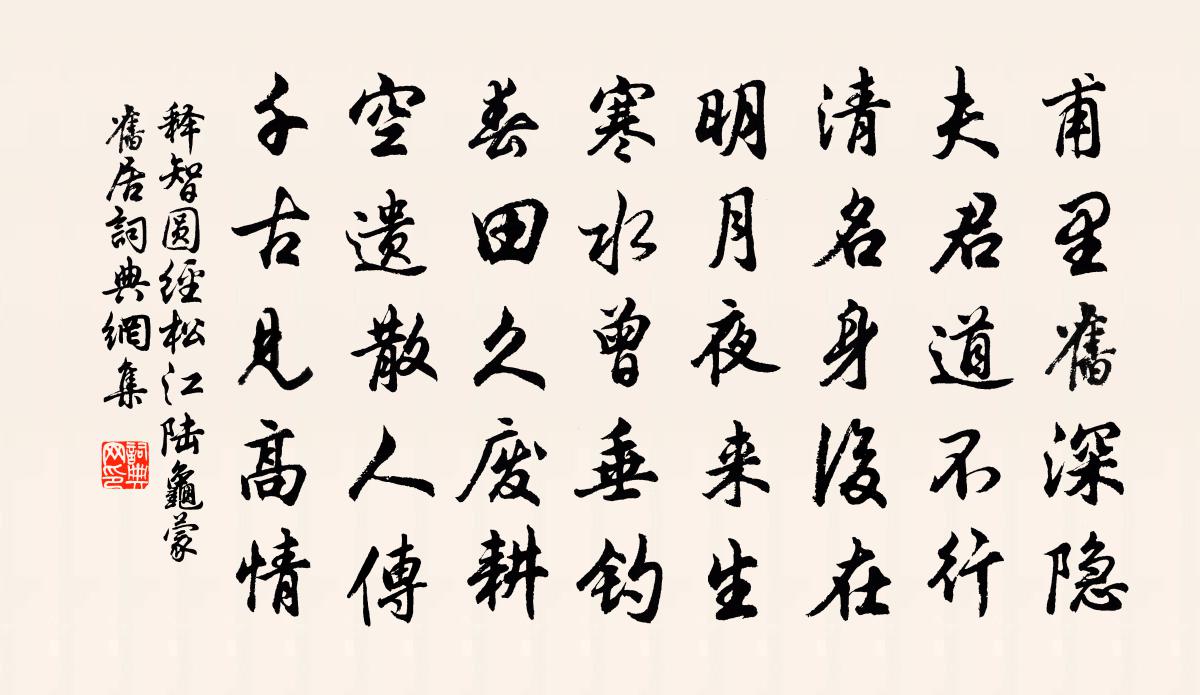 甫里舊深隐
夫君道不行
清名身後在
明月夜来生
寒水曾垂钓
春田久废耕
空遗散人傳
千古見高情
释智圆經松江陆龜蒙
舊居詞典網集
詞典
网印